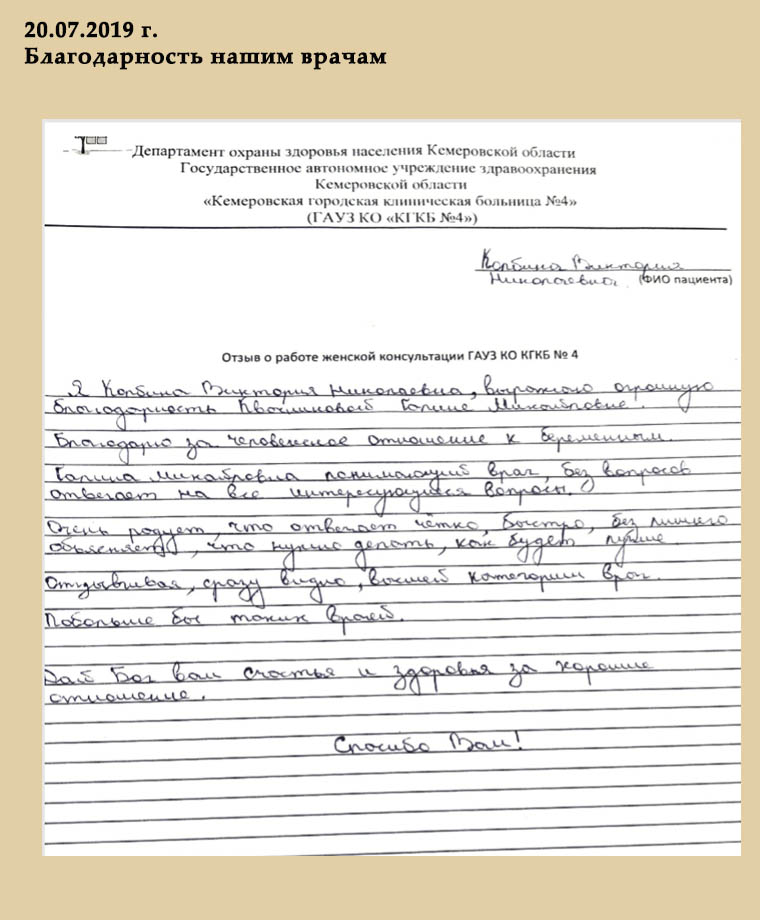 20.07.2019 г.
Благодарность нашим врачам
Департамент охраны здоровья населения Кемеровской области
Государственное автономное учреждение здравоохранения
Кемеровской области
«Кемеровская городская клиническая больница №4»
(ГАУЗ КО «КГКБ №4»)
Колбина Виктория
Николаевна (ФИО пациента)
Отзыв о работе женской консультации ГАУЗ КО КГКБ № 4
Я Колбина Виктория Николаевна, выражаю огромную
благодарность Галине Михайловне.
Благодарю за человеческое отношение к беременным.
Галина Михайловна понимающий врач, без вопросов
отвечает на все интересующиеся вопросы.
Очень радует, что отвечает чётко, быстро, без лишнего
объясняет, что нужно делать, как будет лучше.
Отзывчивая, сразу видно, высшей категории врач.
Побольше бы таких врачей.
Дай Бог вам счастья и здоровья за хорошие
отношение.
Спасибо Вам!